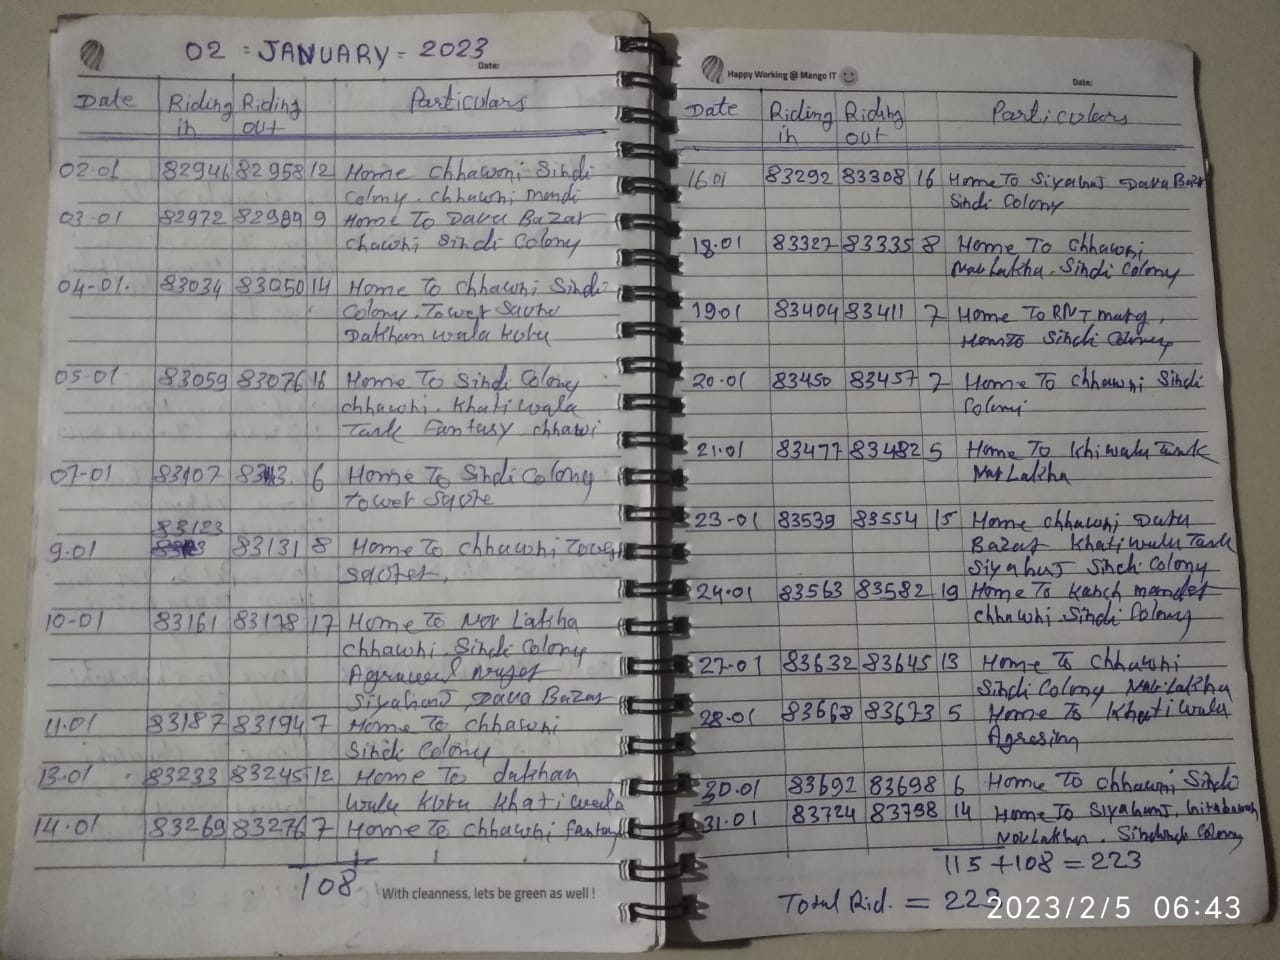 02 : JANUARY - 2023
Date:
Date Riding in Riding out Particulars
02.01 82946 82958 12 Home Chhawni Sindi
Colony. chhawni mendi
03-01 82972 82989 9 Home To Dava Bazar
Chawni Sindi Colony
04-01. 83034 83050 14 Home To Chhawni Sindi
Colony. Tower Sqore
Dakhan wala kotu
05-01 83059 83076 16 Home To Sindi Colony
chhawni. Khatiwala
Tank Fantasy. chhawi
07-01 83107 8 6 Home To Sindi Colony
tower Sqore
83123
9.01 83131 8 Home To chhawni Tower
Sqorer,
10-01 83161 83178 17 Home To Nov Lakha
chhawni. Sindi Colony
Agrawal
Siyahunj Dava Bazar
11.01 83187 83194 7 Home To chhawni
Sindi Colony
13.01 83233 83245 12 Home To dakhan
wala Kotu Khatiwala
14.01 83269 83276 7 Home To chhawni fantasy
108
With cleanness, lets be green as well !
Happy Working @ Mango IT
Date:
Date Riding in Riding out Particulars
16.01 83292 83308 16 Home To Siyahunj Dava Bazar
Sindi Colony
18.01 83327 83335 8 Home To Chhawni
Nav Lakha. Sindi Colony
19.01 83404 83411 7 Home To RNT marg,
Hom To Sindi Colony
20.01 83450 83457 7 Home To chhawni Sindi
Colony
21.01 83477 83482 5 Home To Khiwala Tank
Nav Lakha
23-01 83539 83554 15 Home chhawni Dava
Bazar Khatiwala Tank
Siyahunj Sindi Colony
24.01 83563 83582 19 Home To Kanch mander
chhawni Sindi Colony
27.01 83632 83645 13 Home To Chhawni
Sindi Colony Nav Lakha
28.01 83668 83673 5 Home To Khatiwala
Agresing
30.01 83692 83698 6 Home To chhawni Sindi
31.01 83724 83738 14 Home To Siyahunj,
Nov Lakha. Colony
115 + 108 = 223
Total Rid. = 223
2023/2/5 06:43